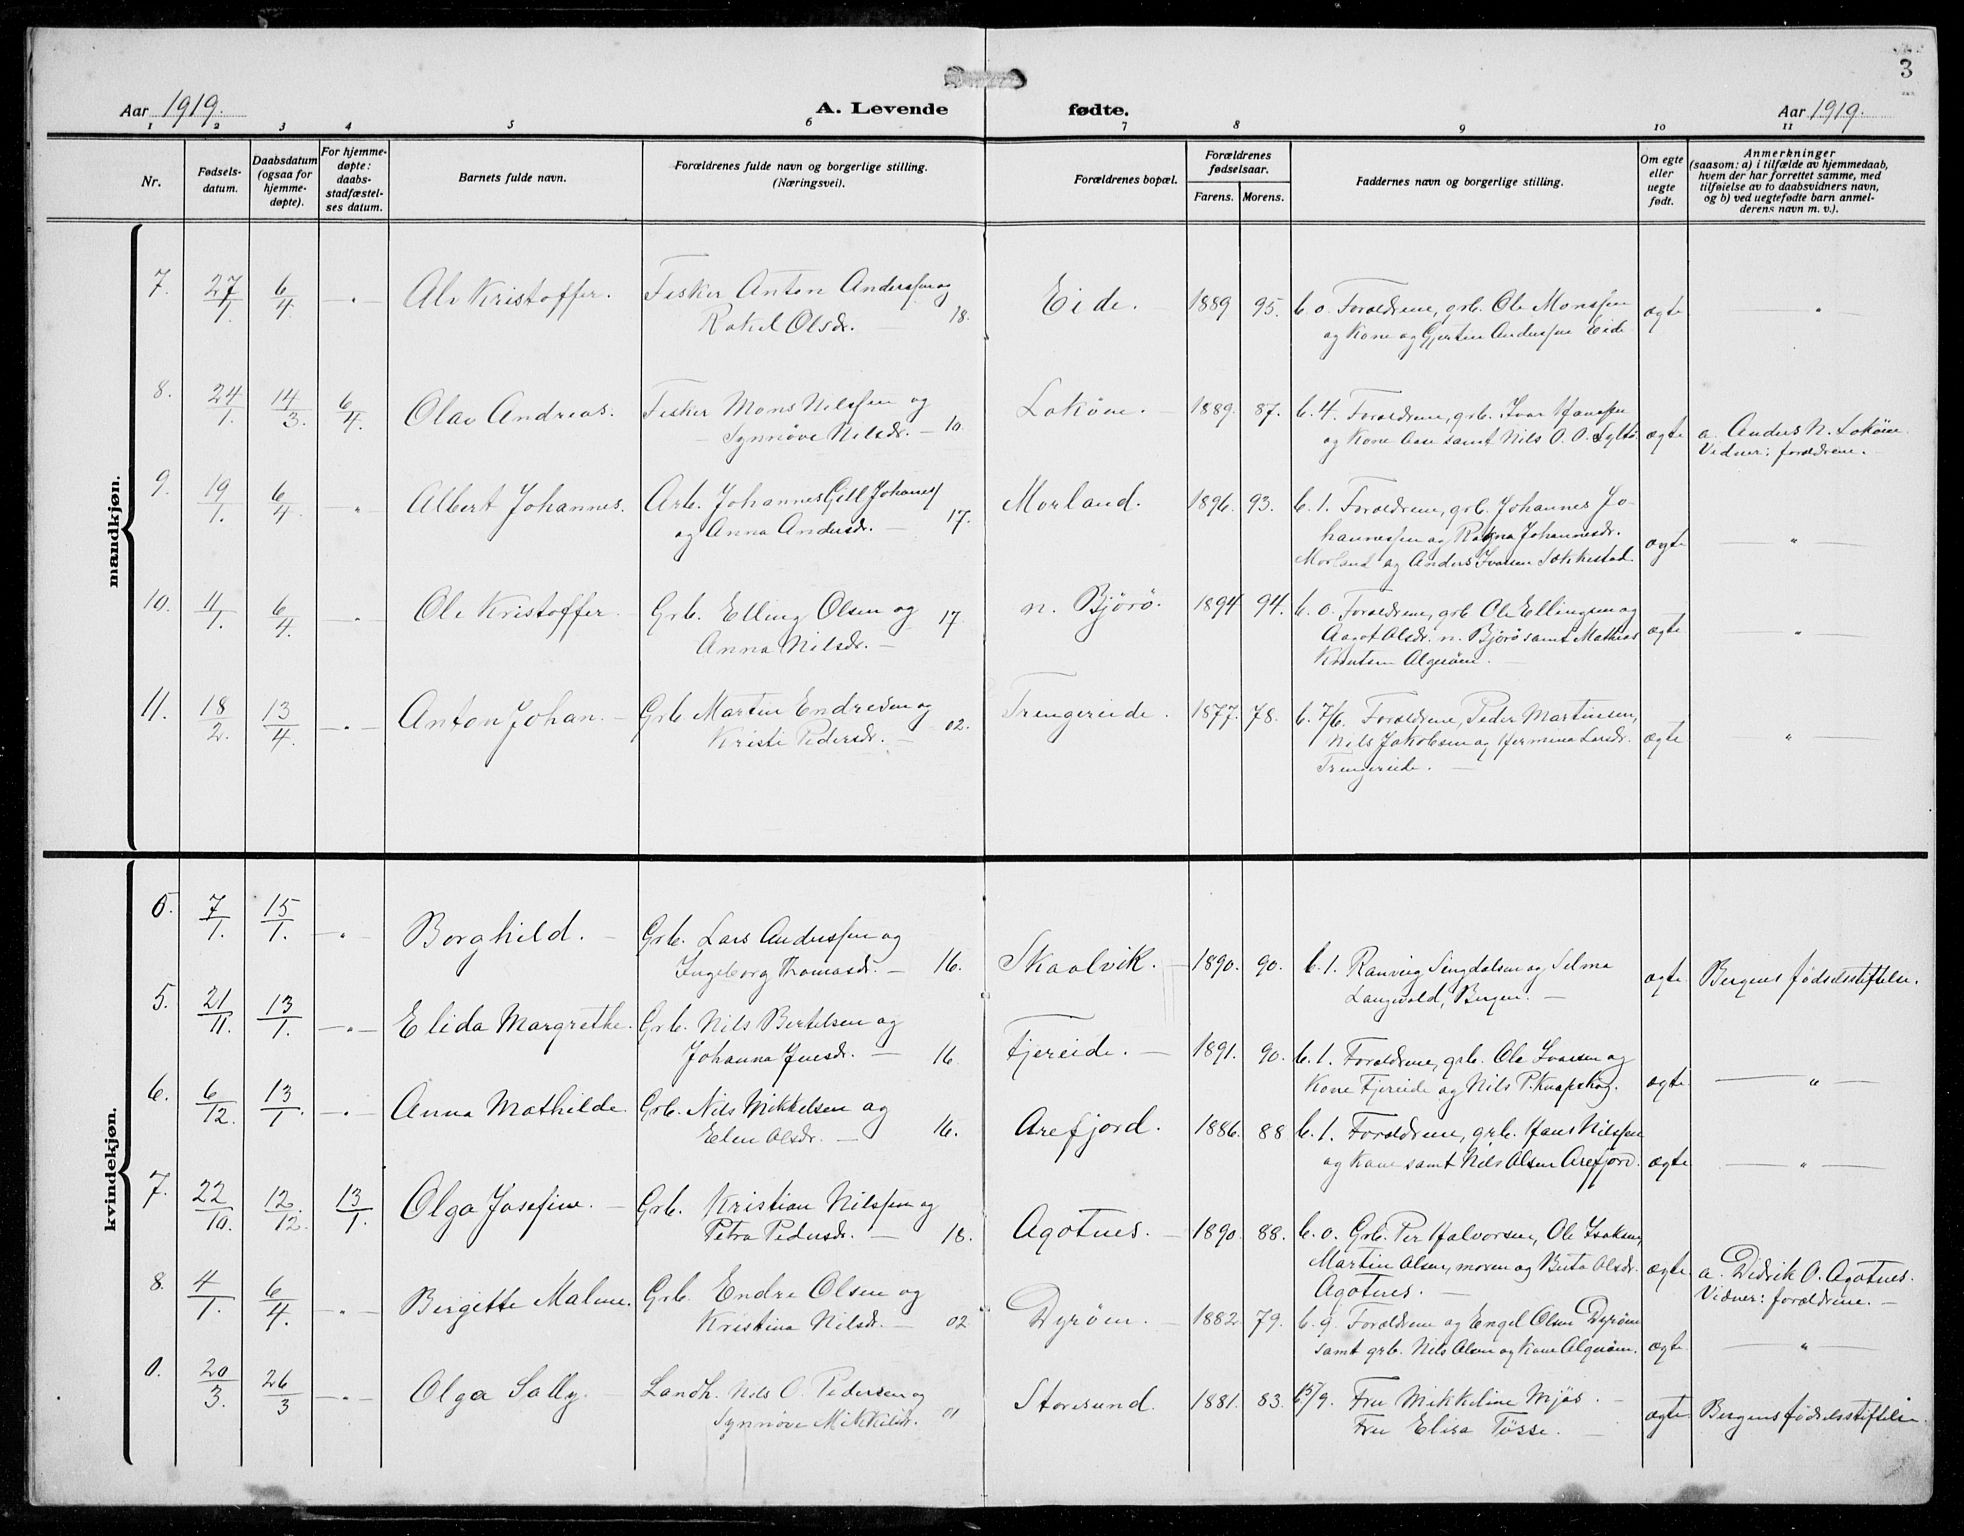 3
Aar 1919.
A. Levende fødte.
Aar 1919.
1 2 3 4 5 6 7 8 9 10 11
Nr.
Fødsels-
datum.
Daabsdatum
(ogsaa for
hjemme-
døpte).
For hjemme-
døpte:
daabs-
stadfæstel-
ses datum.
Barnets fulde navn.
Forældrenes fulde navn og borgerlige stilling.
(Næringsvei).
Forældrenes bopæl.
Forældrenes
fødselsaar.
Farens. Morens.
Faddernes navn og borgerlige stilling.
Om egte
eller
uegte
født.
Anmerkninger
(saasom: a) i tilfælde av hjemmedaab,
hvem der har forrettet samme, med
tilføielse av to daabsvidners navn,
og b) ved uegtefødte barn anmel-
derens navn m. v.).
mandkjøn.
7. 27/1. 6/4. — " — Ale Kristoffer. Fisker Anton Anderssen og
Rakel Olsdr. — 18. Eide. — 1889 95. b. o. Forældrene, grb. Ole Monssen
og Kone og Gjertin Anderssen Eide ægte — " —
8. 24/1. 14/3. 6/4. Olav Andreas. Fisker Mons Nilssen og
— Synnöve Nilsdr. — 10. Loköen. — 1889. 87. b. 4. Forældrene, grb. Ivar Hanssen
og Kone Aase samt Nils O. O. Syltö. ægte a. Anders N. Loköen.
Vidner: forældrene. —
9. 19/1. 6/4. — " Albert Johannes. Arb. Johannes Gill Johanes/
og Anna Andersdr. — 17. Morland. 1896. 93. b. 1. Forældrene, grb. Johannes Jo-
hannessen og Ragna Johannesdr.
Morland og Anders Ivarsen Sekkestad. ægte — " —
10. 11/1. 6/4. — " — Ole Kristoffer. Grb. Elling Olsen og
Anna Nilsdr. — 17. n. Björö. 1894. 94. b. o. Forældrene, grb. Ole Ellingsen og
Aagot Olsdr. n. Björö samt Mathias
Knutsen Algröen. — ægte — "
11. 18/2. 13/4. — " — Anton Johan. — Grb. Martin Endresen og
Kristi Pedersdr. — 02. Trengereide. 1877. 78. b. 7/6. Forældrene, Peder Martinsen,
Nils Jakobsen og Hermina Larsdr.
Trengereide. — ægte — " —
kvindekjøn.
0. 7/1. 15/1. — " — Borghild. — Grb. Lars Anderssen og
Ingeborg Thomasdr. — 16. Skaalvik. — 1890. 90. b. 1. Ranveig Sengdalsen og Selma
Langevold, Bergen. — ægte Bergens fødselsstiftelse.
5. 21/11. 13/1. — " — Elida Margrethe. Grb. Nils Bertelsen og
Johanna Jensdr. — 16. Fjereide. — 1891. 90. b. 1. Forældrene, grb. Ole Ivarsen og
Kone Fjereide og Nils P. Knapskog. ægte — " —
6. 6/12. 13/1. — " — Anna Mathilde. Grb. Nils Mikkelsen og
Elen Olsdr. — 16. Arefjord. 1886. 88 b. 1. Forældrene, grb. Hans Nilssen
og Kone samt Nils Olsen Arefjord. ægte — " —
7. 22/10. 12/12. 13/1. Olga Josefine. — Grb. Kristian Nilssen og
Petra Pedersdr. — 18. Agotnes. — 1890. 88. b. o. Grb. Per Halvorsen, Ole Isaksen,
Martin Olsen, moren og Berta Olsdr.
Agotnes. — ægte a. Didrik O. Agotnes.
Vidner: forældrene. —
8. 4/1. 6/4. — " — Birgitte Malene. Grb. Endre Olsen og
Kristina Nilsdr. — 02. Dyröen. — 1882. 79. b. 9. Forældrene og Engel Olsen Dyröen
samt grb. Nils Olsen og Kone Algröen. ægte — " —
0. 20/3. 26/3 — " — Olga Sally. Landh. Nils O. Pedersen og
Synnöve Mikkelsdr. 01 Storesund. 1881. 83. 15/9. Fru Mikkeline Mjös. —
Fru Elisa Tösse. — ægte Bergens fødselsstiftelse.